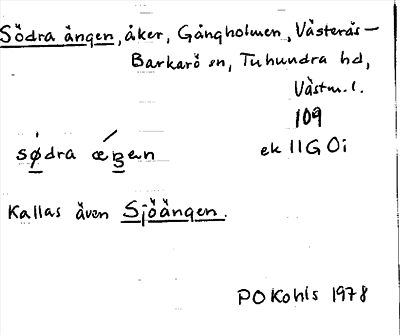 Södra ängen, åker, Gångholmen, Västerås-
Barkarö sn, Tuhundra hd,
Västm. l.
109
södra
ek 11G Oi
Kallas även Sjöängen.
PO Kohls 1978